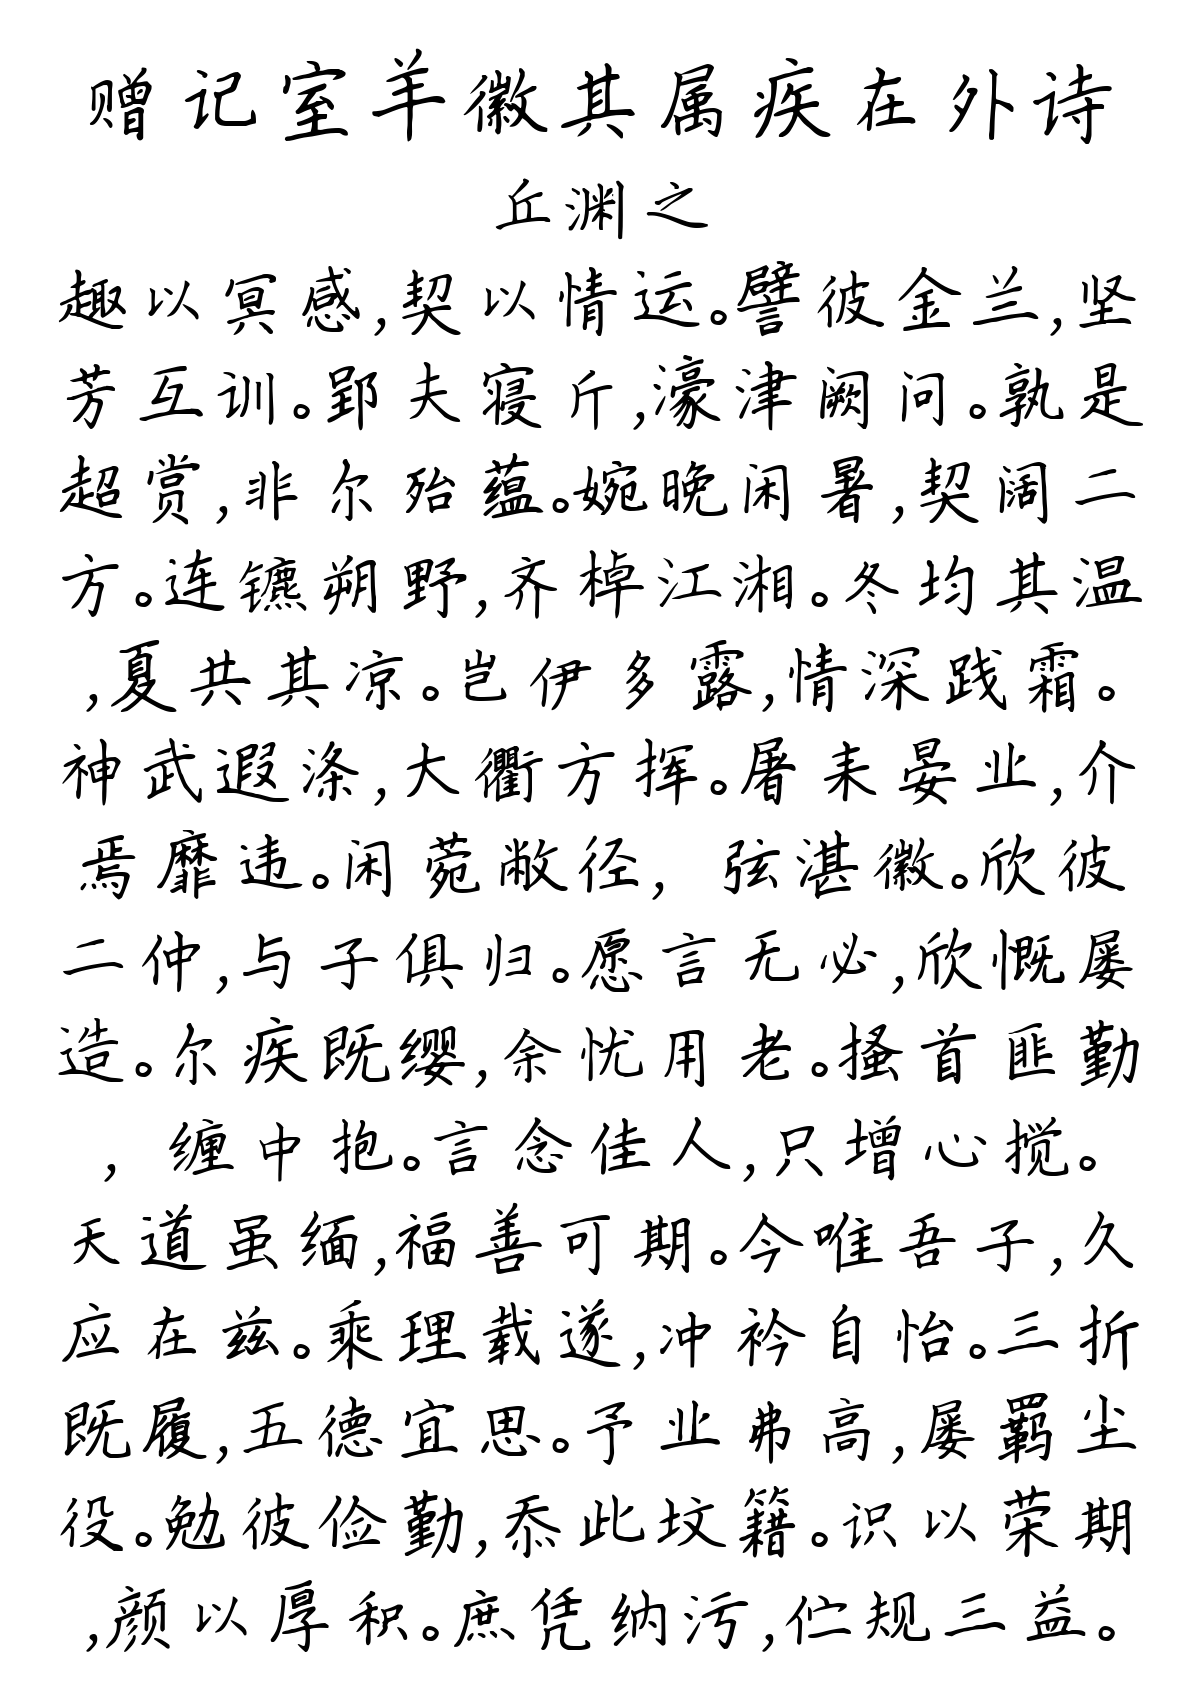 赠记室羊徽其属疾在外诗
丘渊之
趣以冥感,契以情运。譬彼金兰,坚
芳互训。郢夫寝斤,濠津阙问。孰是
超赏,非尔殆蕴。婉晚闲暑,契阔二
方。连镳朔野,齐棹江湘。冬均其温
,夏共其凉。岂伊多露,情深践霜。
神武遐涤,大衢方挥。屠耒晏业,介
焉靡违。闲菀敝径, 弦湛徽。欣彼
二仲,与子俱归。愿言无必,欣慨屡
造。尔疾既缨,余忧用老。搔首匪勤
, 缠中抱。言念佳人,只增心搅。
天道虽缅,福善可期。今唯吾子,久
应在兹。乘理载遂,冲衿自怡。三折
既履,五德宜思。予业弗高,屡羁尘
役。勉彼俭勤,忝此坟籍。识以荣期
,颜以厚积。庶凭纳污,伫规三益。